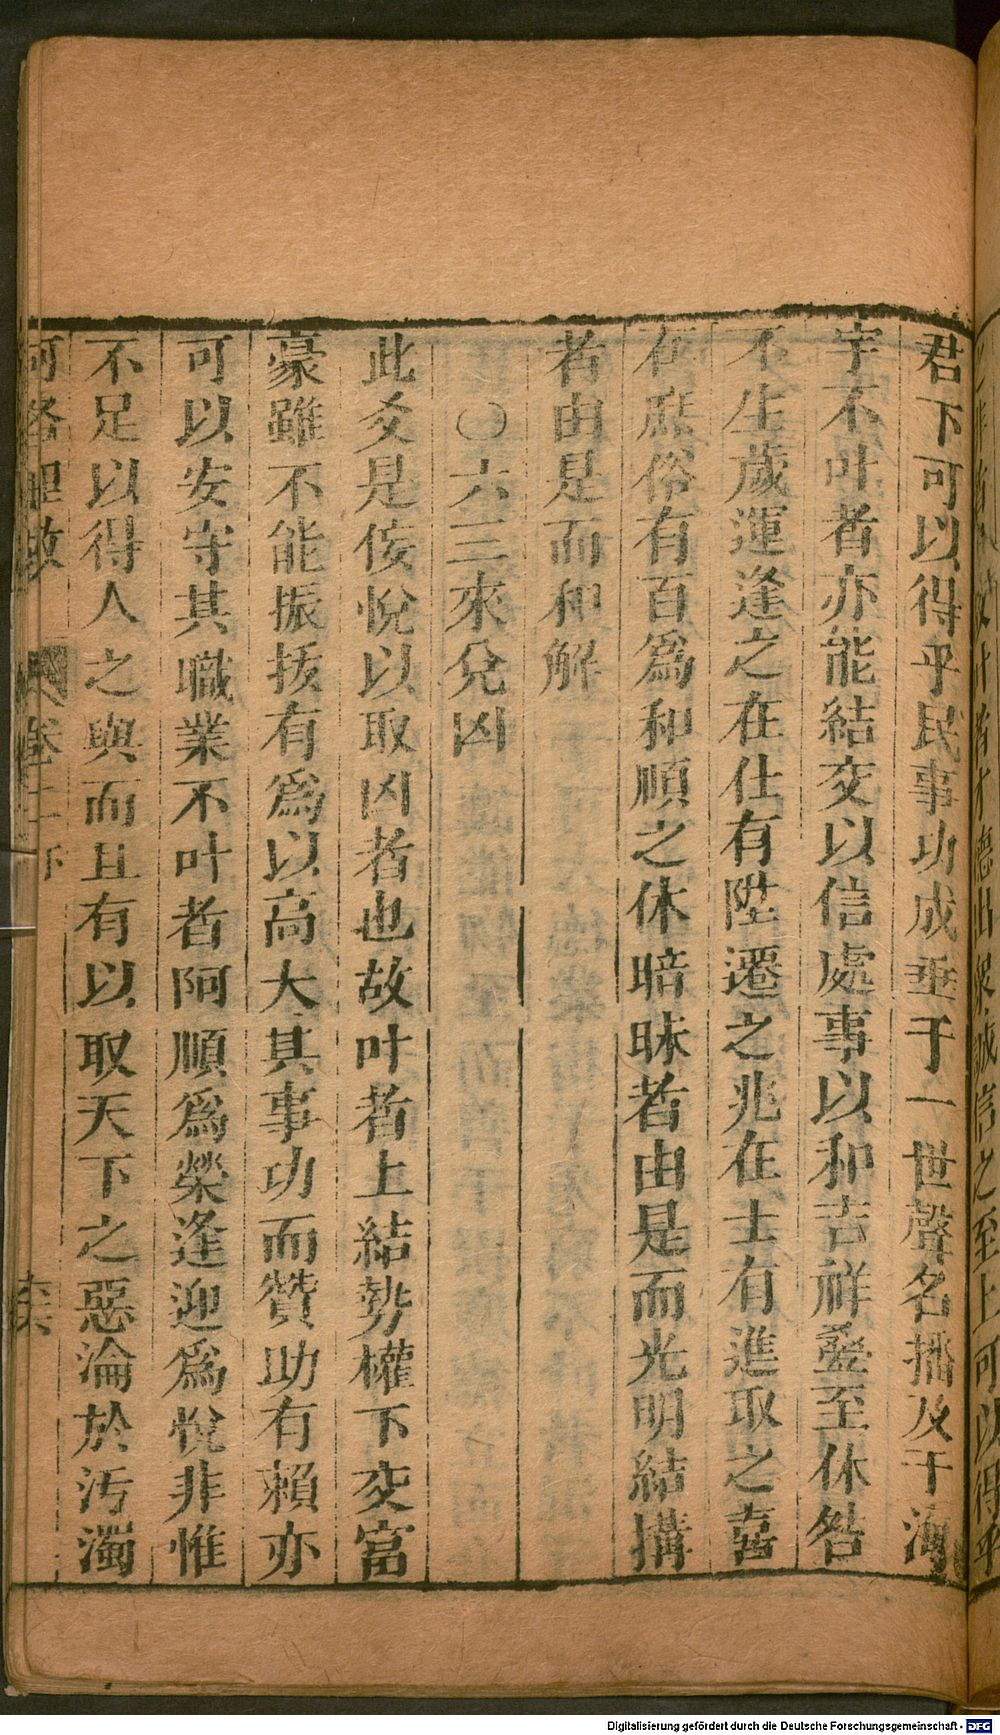 君下可以得乎民事功成垂于一世聲名播及于海
宇不叶者亦能結交以信處事以和吉祥疊至休咎
不生歲運逢之在仕有陞遷之兆在士有進取之喜
在庶俗有百爲和順之休暗昧者由是而光明結搆
者由是而和解
〇六三來兌凶
此爻是佞悅以取凶者也故叶者上結勢權下交富
豪雖不能振拔有爲以高大其事功而贊助有賴亦
可以安守其職業不叶者阿順爲榮逢迎爲悅非惟
不足以得人之與而且有以取天下之惡淪於汚濁
河洛理數
卷
Digitalisierung gefördert durch die Deutsche Forschungsgemeinschaft - DFG